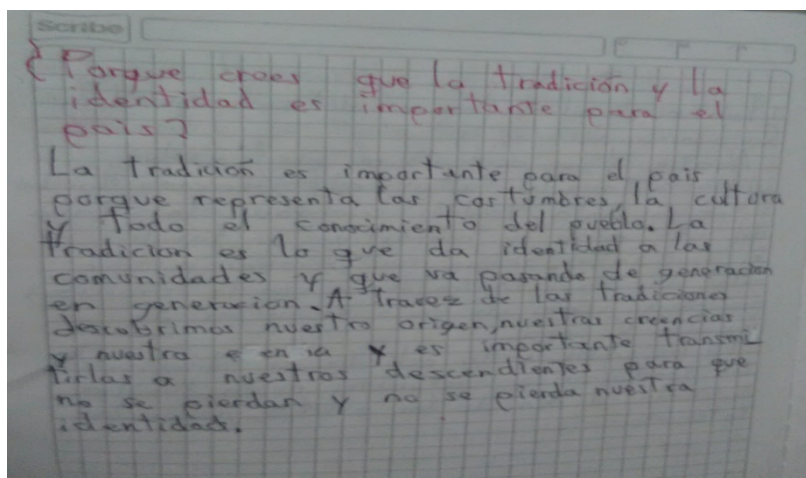 scribe
¿Porque crees que la tradición y la
identidad es importante para el
pais?
La tradición es importante para el pais
porque representa las costumbres, la cultura
y todo el conocimiento del pueblo. La
tradicion es lo que da identidad a las
comunidades y que va pasando de generacion
en generacion. A travez de las tradiciones
descubrimos nuestro origen, nuestras creencias
y nuestra y es importante transmi
tirlas a nuestros descendientes para que
no se pierdan y no se pierda nuestra
identidad.